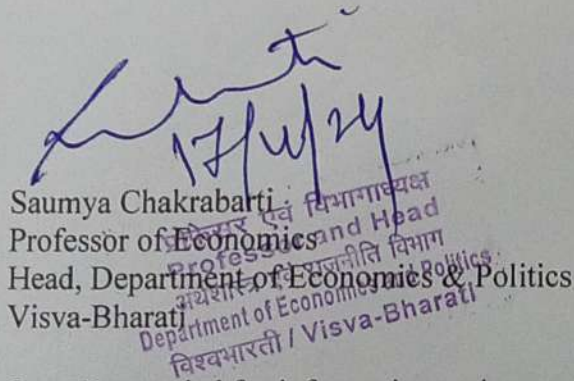 17/4/24
Saumya Chakrabarti
Professor of Economics
Head, Department of Economics & Politics
Visva-Bharati
प्रोफेसर एवं विभागाध्यक्ष
Professor and Head
अर्थशास्त्र एवं राजनीति विभाग
Department of Economics and Politics
विश्वभारती / Visva-Bharati